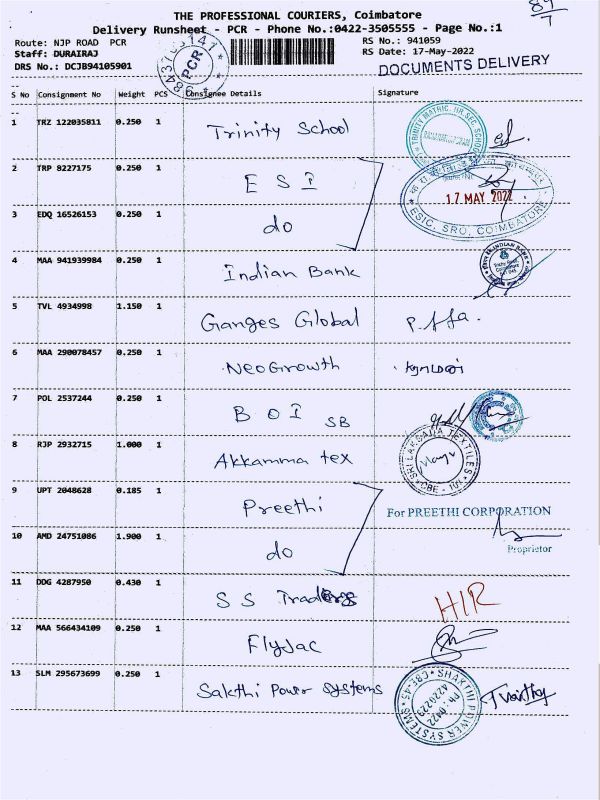 THE PROFESSIONAL COURIERS, Coimbatore
Delivery Runsheet - PCR - Phone No.:0422-3505555 - Page No.:1
Route: NJP ROAD PCR
RS No.: 941059
Staff: DURAIRAJ
RS Date: 17-May-2022
DRS No.: DCJB94105901
DOCUMENTS DELIVERY
PCR
S No Consignment No Weight PCS Consignee Details Signature
1 TRZ 122035811 0.250 1 Trinity School
TRINITY MATRIC. HR SEC. SCHOOL
2 TRP 8227175 0.250 1 E S I
17 MAY 2022
ESIC, SRO, COIMBATORE
3 EDQ 16526153 0.250 1 do
4 MAA 941939984 0.250 1 Indian Bank
INDIAN BANK
5 TVL 4934998 1.150 1 Ganges Global
6 MAA 290078457 0.250 1 NeoGrowth
7 POL 2537244 0.250 1 B O I SB
8 RJP 2932715 1.000 1 Akkamma tex
SRI LAKSADA TEXTILES
9 UPT 2048628 0.185 1 Preethi
For PREETHI CORPORATION
10 AMD 24751086 1.900 1 do
Proprietor
11 DDG 4287950 0.430 1 S S Traders H/R
12 MAA 566434109 0.250 1 Flyjac
13 SLM 295673699 0.250 1 Sakthi Power Systems
SHAKTHI POWER SYSTEMS CBE-45